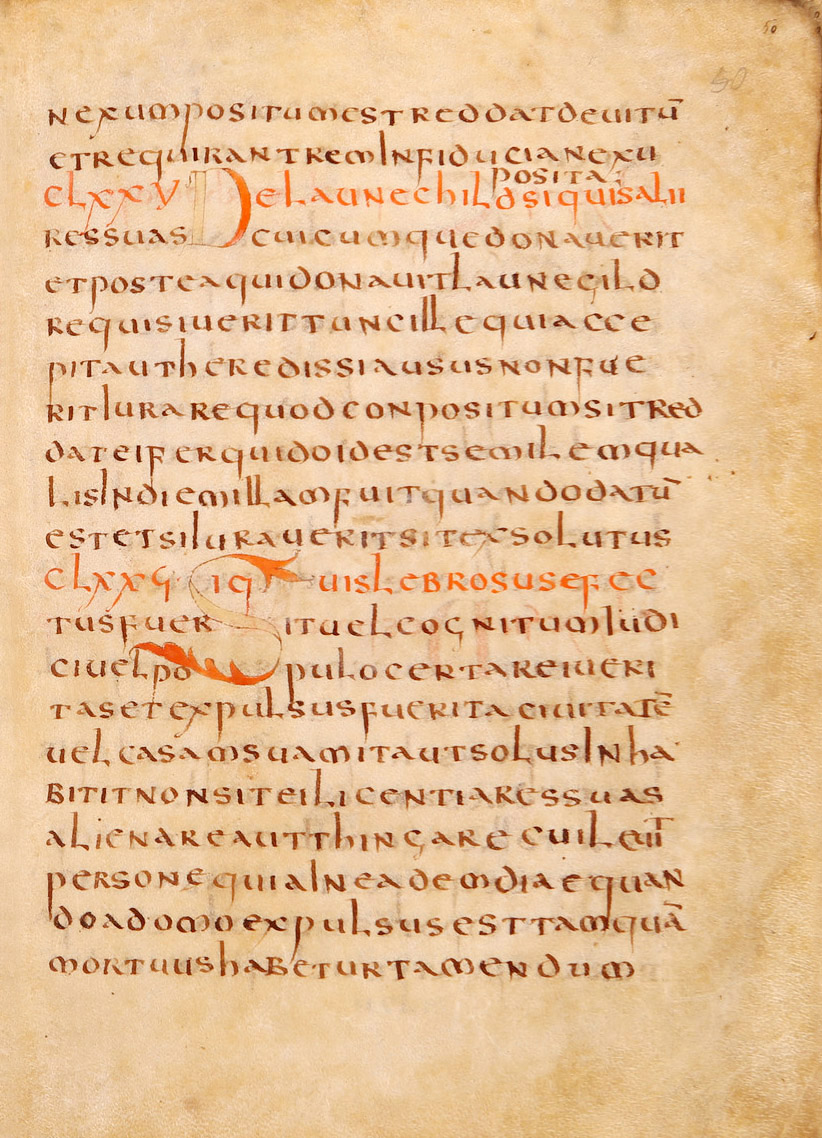 50
50
nexum positum est reddat devitū
et requirant rem in fiducia nexu
posita:
CLXXV De launechild si quis alii
res suas cuicumque donaverit
et postea qui donavit launegild
requisiverit tunc ille qui acce
pit aut heredis si ausus non fue
rit iurare quod conpositum sit red
dat ei ferquido id est semilem qua
lis in die illa m fuit quando datū
est et si iuraverit sit exsolutus
CLXXVI Si quis lebrosus effec
tus fuerit vel cognitum iudi
ci vel populo certa rei veri
tas et expulsus fuerit a civitatē
vel casam suam ita ut solus inha
bitit non sit ei licentia res suas
alienare aut thingare cuilevit
persone quia in eadem diae quan
do a domo expulsus est tamquā
mortuus habetur tamen dum